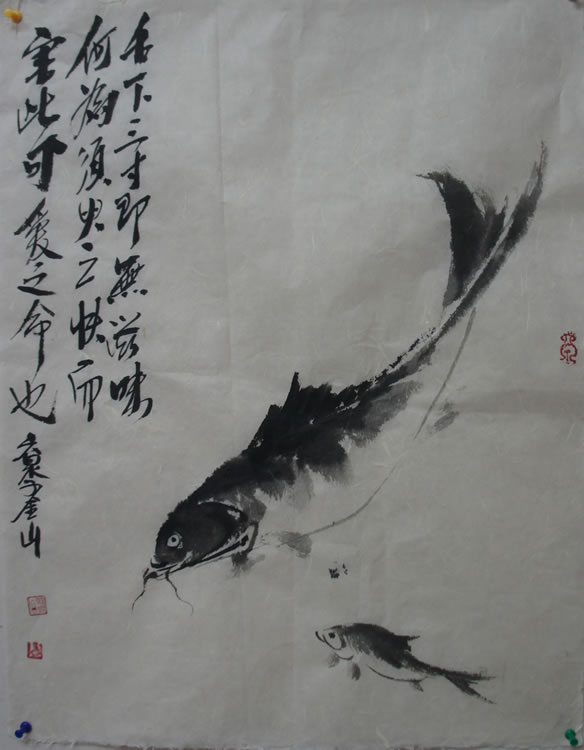 舌下三寸即無滋味
何為須臾之快而
此可愛之命也
金山